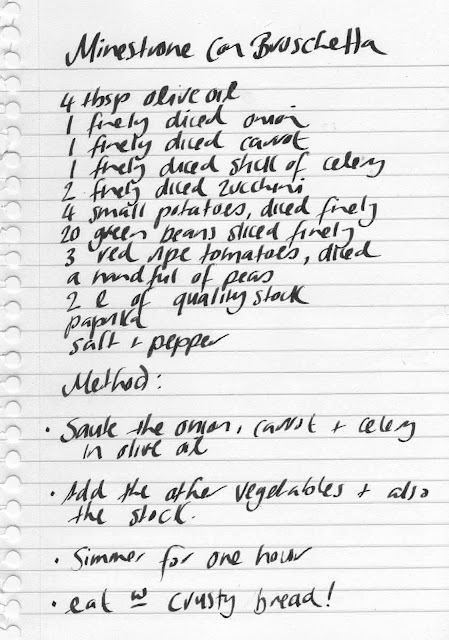 Minestrone Con Bruschetta
4 tbsp olive oil
1 finely diced onion
1 finely diced carrot
1 finely diced stick of celery
2 finely diced zucchini
4 small potatoes, diced finely
20 green beans sliced finely
3 red ripe tomatoes, diced
a handful of peas
2 l of quality stock
paprika
salt + pepper
Method:
· Saute the onion, carrot + celery
in olive oil
· Add the other vegetables + also
the stock.
· Simmer for one hour
· eat w crusty bread!